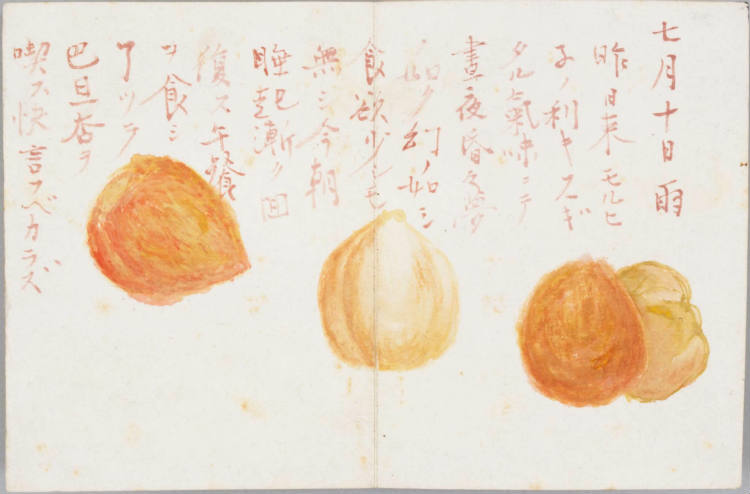 七月十日雨
昨日来モルヒ
子ノ利キスギ
タル氣味ニテ
晝夜昏々夢
ノ如ク幻ノ如シ
食欲少シモ
無シ今朝
睡起漸ク回
復ス午餐
ヲ食シ
了ツテ
巴旦杏ヲ
喫ス快言フベカラズ